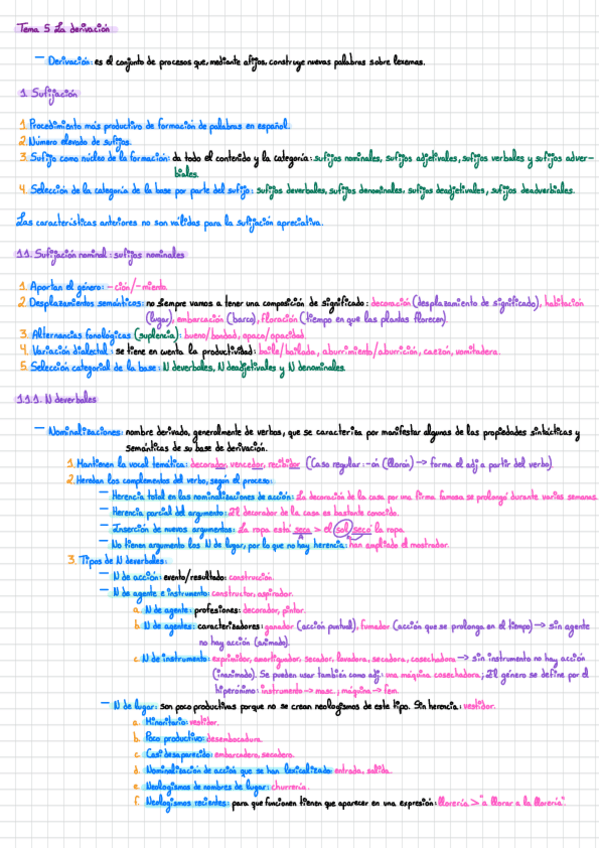 Tema 5 La derivación
— Derivación: es el conjunto de procesos que, mediante afijos, construye nuevas palabras sobre lexemas.
1. Sufijación
1. Procedimiento más productivo de formación de palabras en español.
2. Número elevado de sufijos.
3. Sufijo como núcleo de la formación: da todo el contenido y la categoría: sufijos nominales, sufijos adjetivales, sufijos verbales y sufijos adver-
biales.
4. Selección de la categoría de la base por parte del sufijo: sufijos deverbales, sufijos denominales, sufijos deadjetivales, sufijos deadverbiales.
Las características anteriores no son válidas para la sufijación apreciativa.
1.1. Sufijación nominal: sufijos nominales
1. Aportan el género: -ción/-miento
2. Desplazamientos semánticos: no siempre vamos a tener una composición de significado: decoración (desplazamiento de significado), habitación
(lugar), embarcación (barco), floración (tiempo en que las plantas florecen)
3. Alternancias fonológicas (suplencia): bueno/bondad, opaco/opacidad.
4. Variación dialectal: se tiene en cuenta la productividad: baile/bailada, aburrimiento/aburrición, caezón, vomitadera.
5. Selección categorial de la base: N deverbales, N deadjetivales y N denominales.
1.1.1. N deverbales
— Nominalizaciones: nombre derivado, generalmente de verbos, que se caracteriza por manifestar algunas de las propiedades sintácticas y
semánticas de su base de derivación.
1. Mantienen la vocal temática: decorador, vencedor, recibidor (Caso regular: -ón (lloroñ) → forma el adj a partir del verbo)
2. Heredan los complementos del verbo, según el proceso:
— Herencia total en las nominalizaciones de acción: La decoración de la casa por una firma famosa se prolongó durante varias semanas.
— Herencia parcial del argumento: El decorador de la casa es bastante conocido.
— Inserción de nuevos argumentos: La ropa está seca > el sol secó la ropa.
— No tienen argumento los N de lugar, por lo que no hay herencia: han ampliado el mostrador.
3. Tipos de N deverbales:
— N de acción: evento/resultado: construcción.
— N de agente e instrumento: constructor, aspirador.
a. N de agente: profesiones: decorador, pintor.
b. N de agentes: caracterizadores: ganador (acción puntual), fumador (acción que se prolonga en el tiempo) → sin agente
no hay acción (animado).
c. N de instrumento: exprimidor, amortiguador, secador, lavadora, secadora, cosechadora → sin instrumento no hay acción
(inanimado). Se pueden usar también como adj: una máquina cosechadora; El género se define por el
hiperónimo: instrumento → masc.; máquina → fem.
— N de lugar: son poco productivas porque no se crean neologismos de este tipo. Sin herencia: vestidor.
a. Minoritario: vestidor.
b. Poco productivo: desembocadura.
c. Casi desaparecido: embarcadero, secadero.
d. Nominalización de acción que se han lexicalizado: entrada, salida.
e. Neologismos de nombres de lugar: churrería.
f. Neologismos recientes: para que funcionen tienen que aparecer en una expresión: llorería > "a llorar a la llorería".